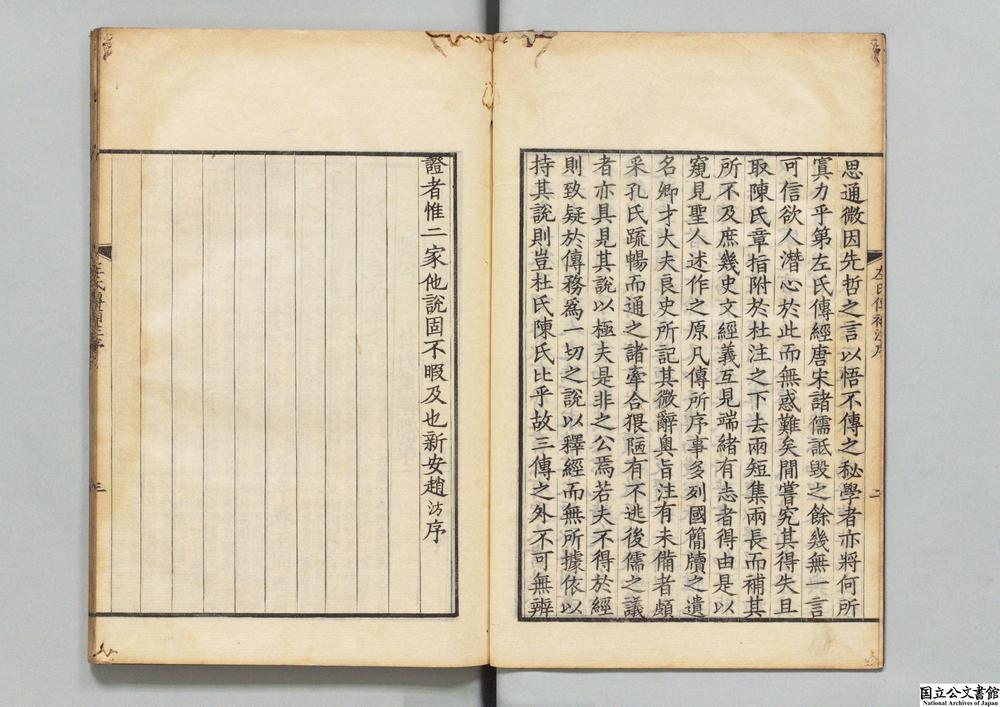 思通微因先哲之言以悟不傳之秘學者亦將何所
寘力乎第左氏傳經唐宋諸儒詆毀之餘幾無一言
可信欲人潛心於此而無惑難矣間嘗究其得失且
取陳氏章指附於杜注之下去兩短集兩長而補其
所不及庶幾史文經義互見端緒有志者得由是以
窺見聖人述作之原凡傳所序事多列國簡牘之遺
名卿才大夫良史所記其微辭奥旨注有未備者頗
采孔氏疏暢而通之諸牽合猥陋有不逃後儒之議
者亦具見其說以極夫是非之公焉若夫不得於經
則致疑於傳務爲一切之說以釋經而無所據依以
持其說則豈杜氏陳氏比乎故三傳之外不可無辨
左氏傳補注序
二
證者惟二家他說固不暇及也新安趙汸序
左氏傳補注序
三
国立公文書館
National Archives of Japan